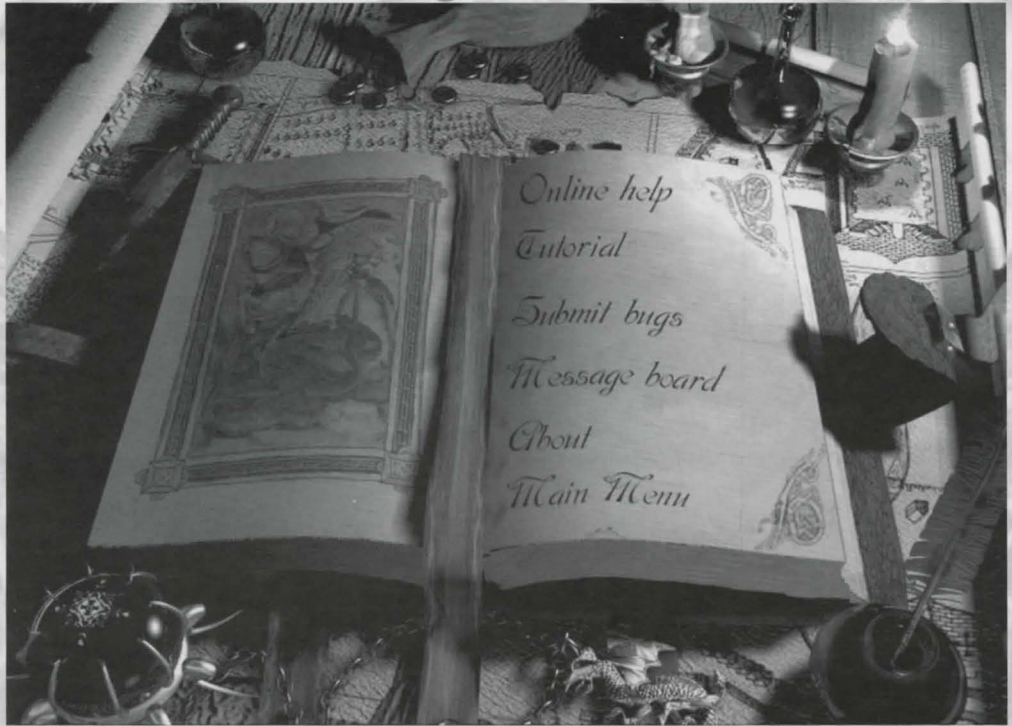 Online help
Tutorial
Submit bugs
Message board
About
Main Menu